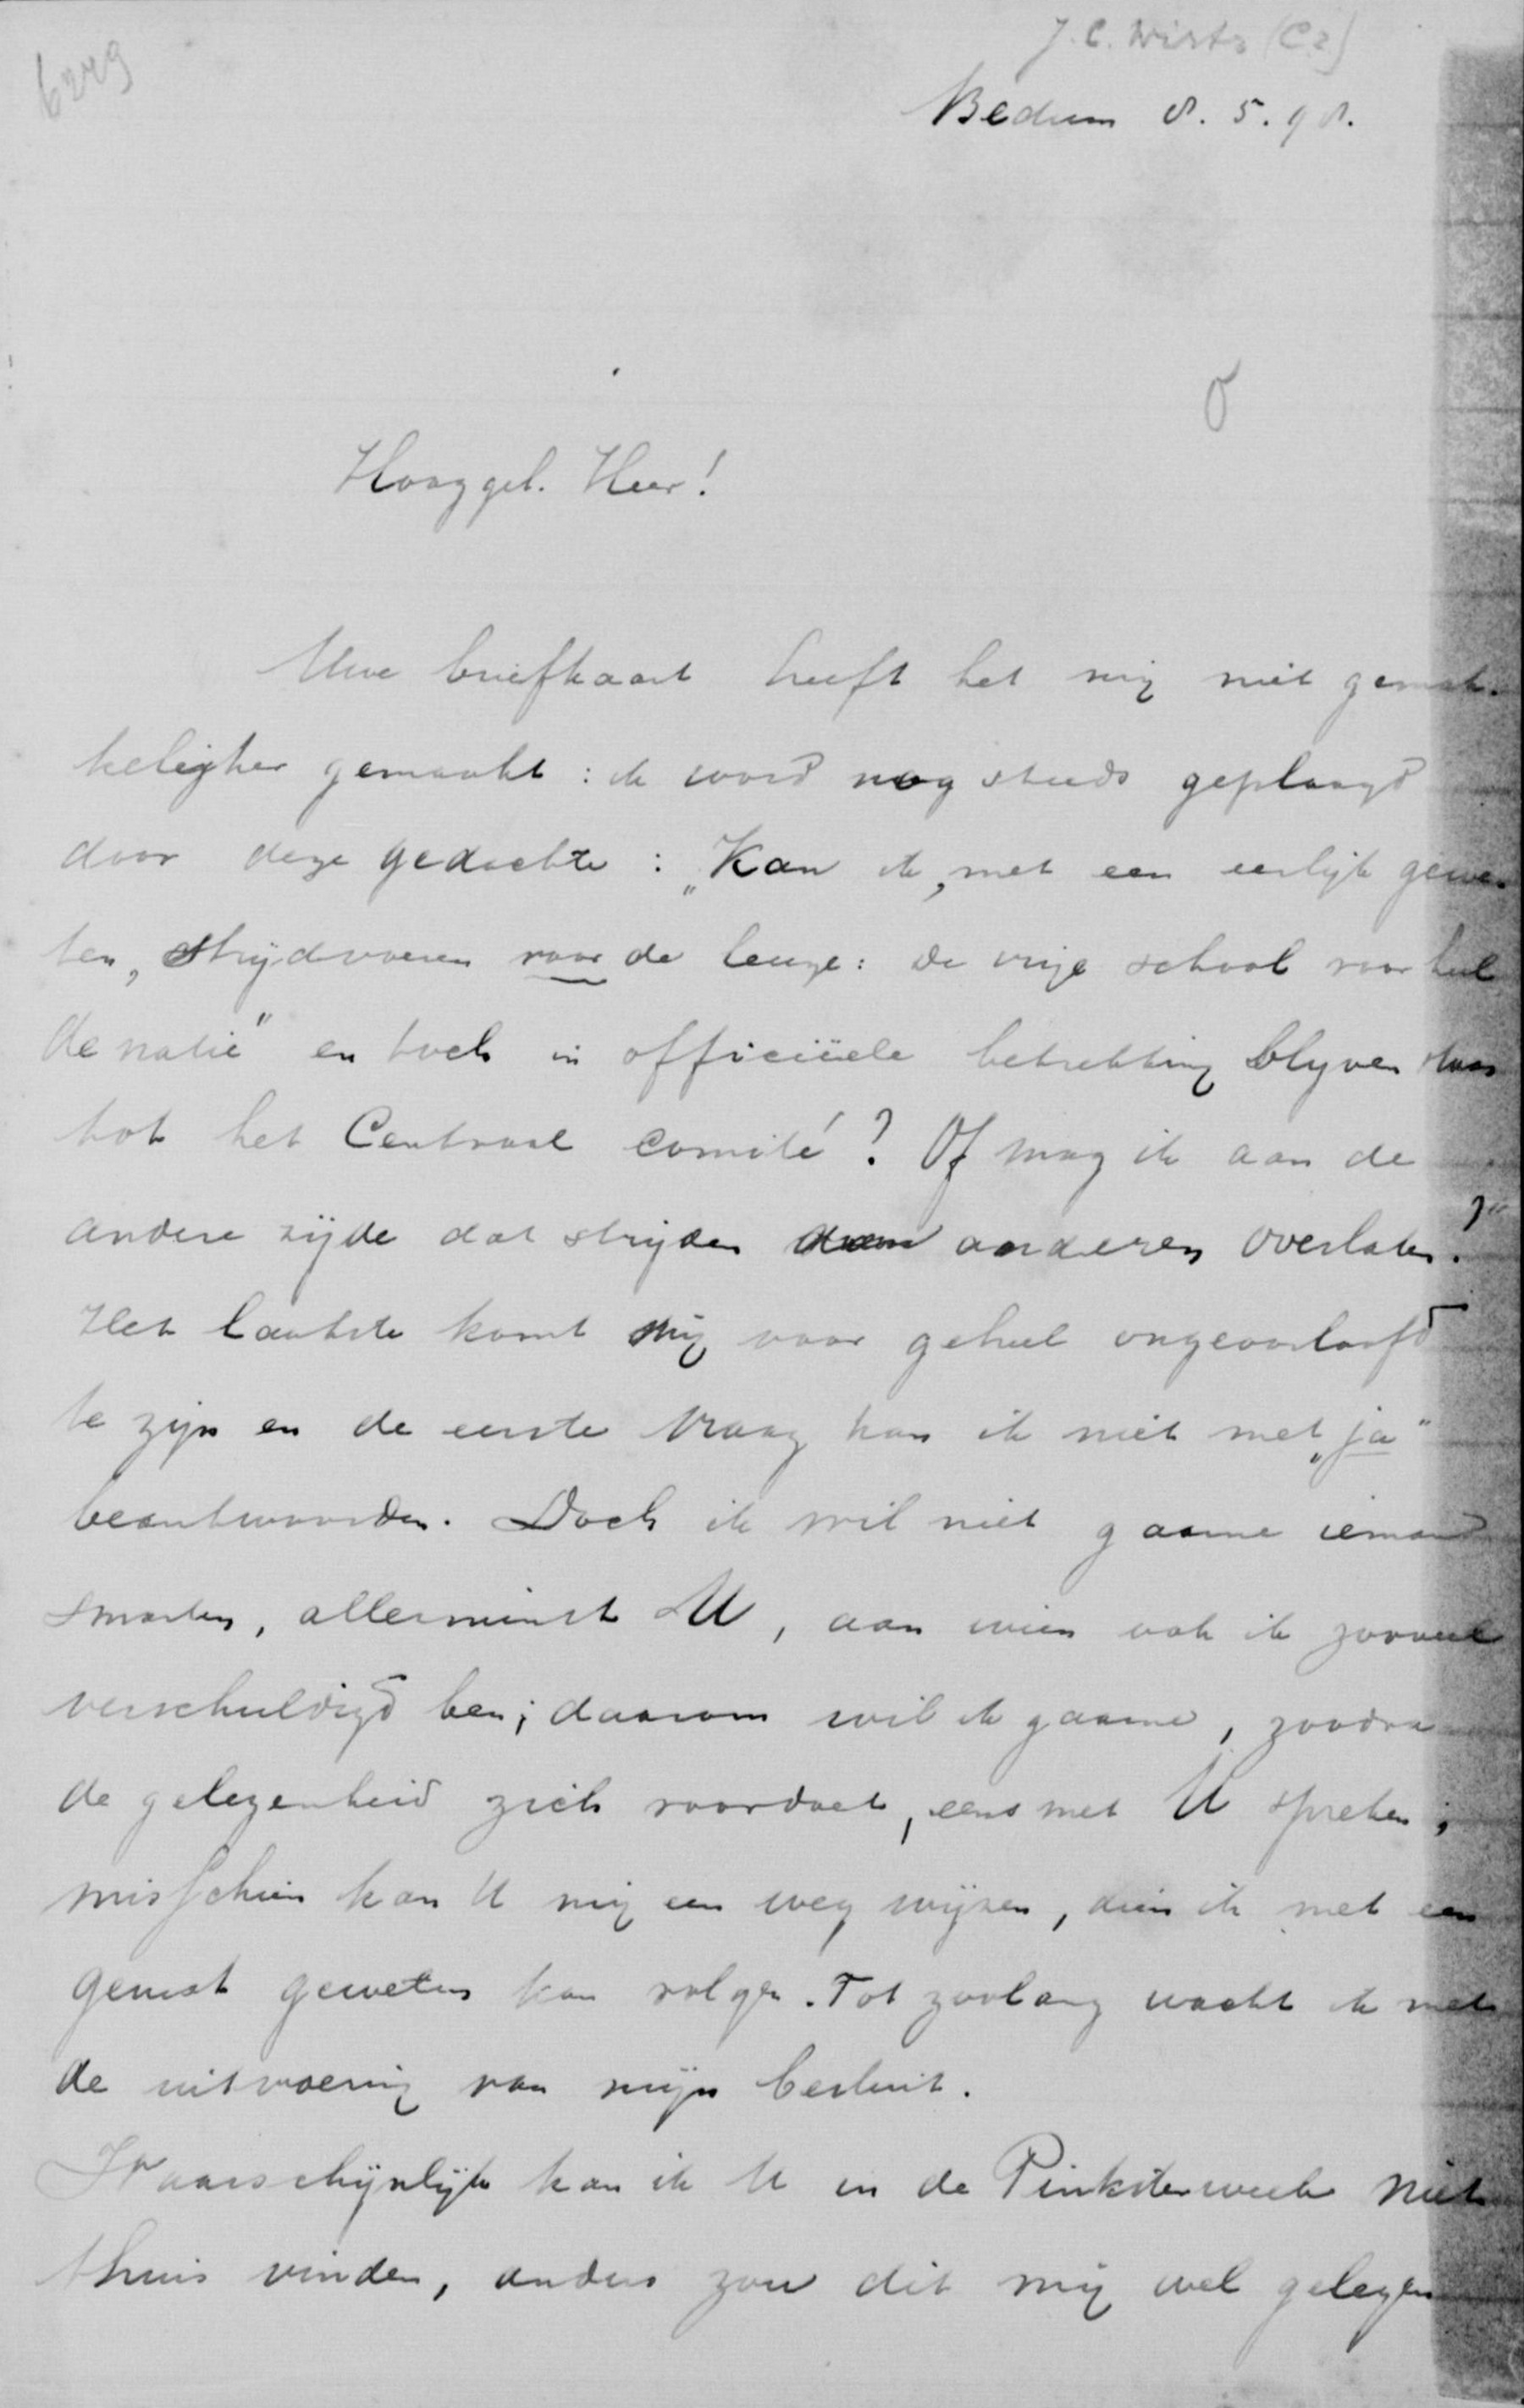 6249
J. C. Wirtz (Cz)
Bedum 8. 5. 98.
Hooggel. Heer!
Uwe briefkaart heeft het mij niet gemak-
kelijker gemaakt: ik word nog steeds geplaagd
door deze gedachte: „Kan ik, met een eerlijk gewe-
ten, strijdvoeren voor de leuze: de vrije school voor heel
de natie" en toch in officiëele betrekking blyven staan
tot het Centraal comité? Of mag ik aan de
andere zijde dat strijden aan anderen overlaten?"
Het laatste komt mij voor geheel ongeoorloofd
te zijn en de eerste vraag kan ik niet met „ja"
beantwoorden. Doch ik wil niet gaarne iemand
smarten, allerminst U, aan wien ook ik zooveel
verschuldigd ben; daarom wil ik gaarne, zoodra
de gelegenheid zich voordoet, eens met U spreken;
misschien kan U mij een weg wijzen, dien ik met een
gerust geweten kan volgen. Tot zoolang wacht ik met
de uitvoering van mijn besluit.
Waarschijnlijk kan ik U in de Pinksterweek niet
thuis vinden, anders zou dit mij wel gelegen